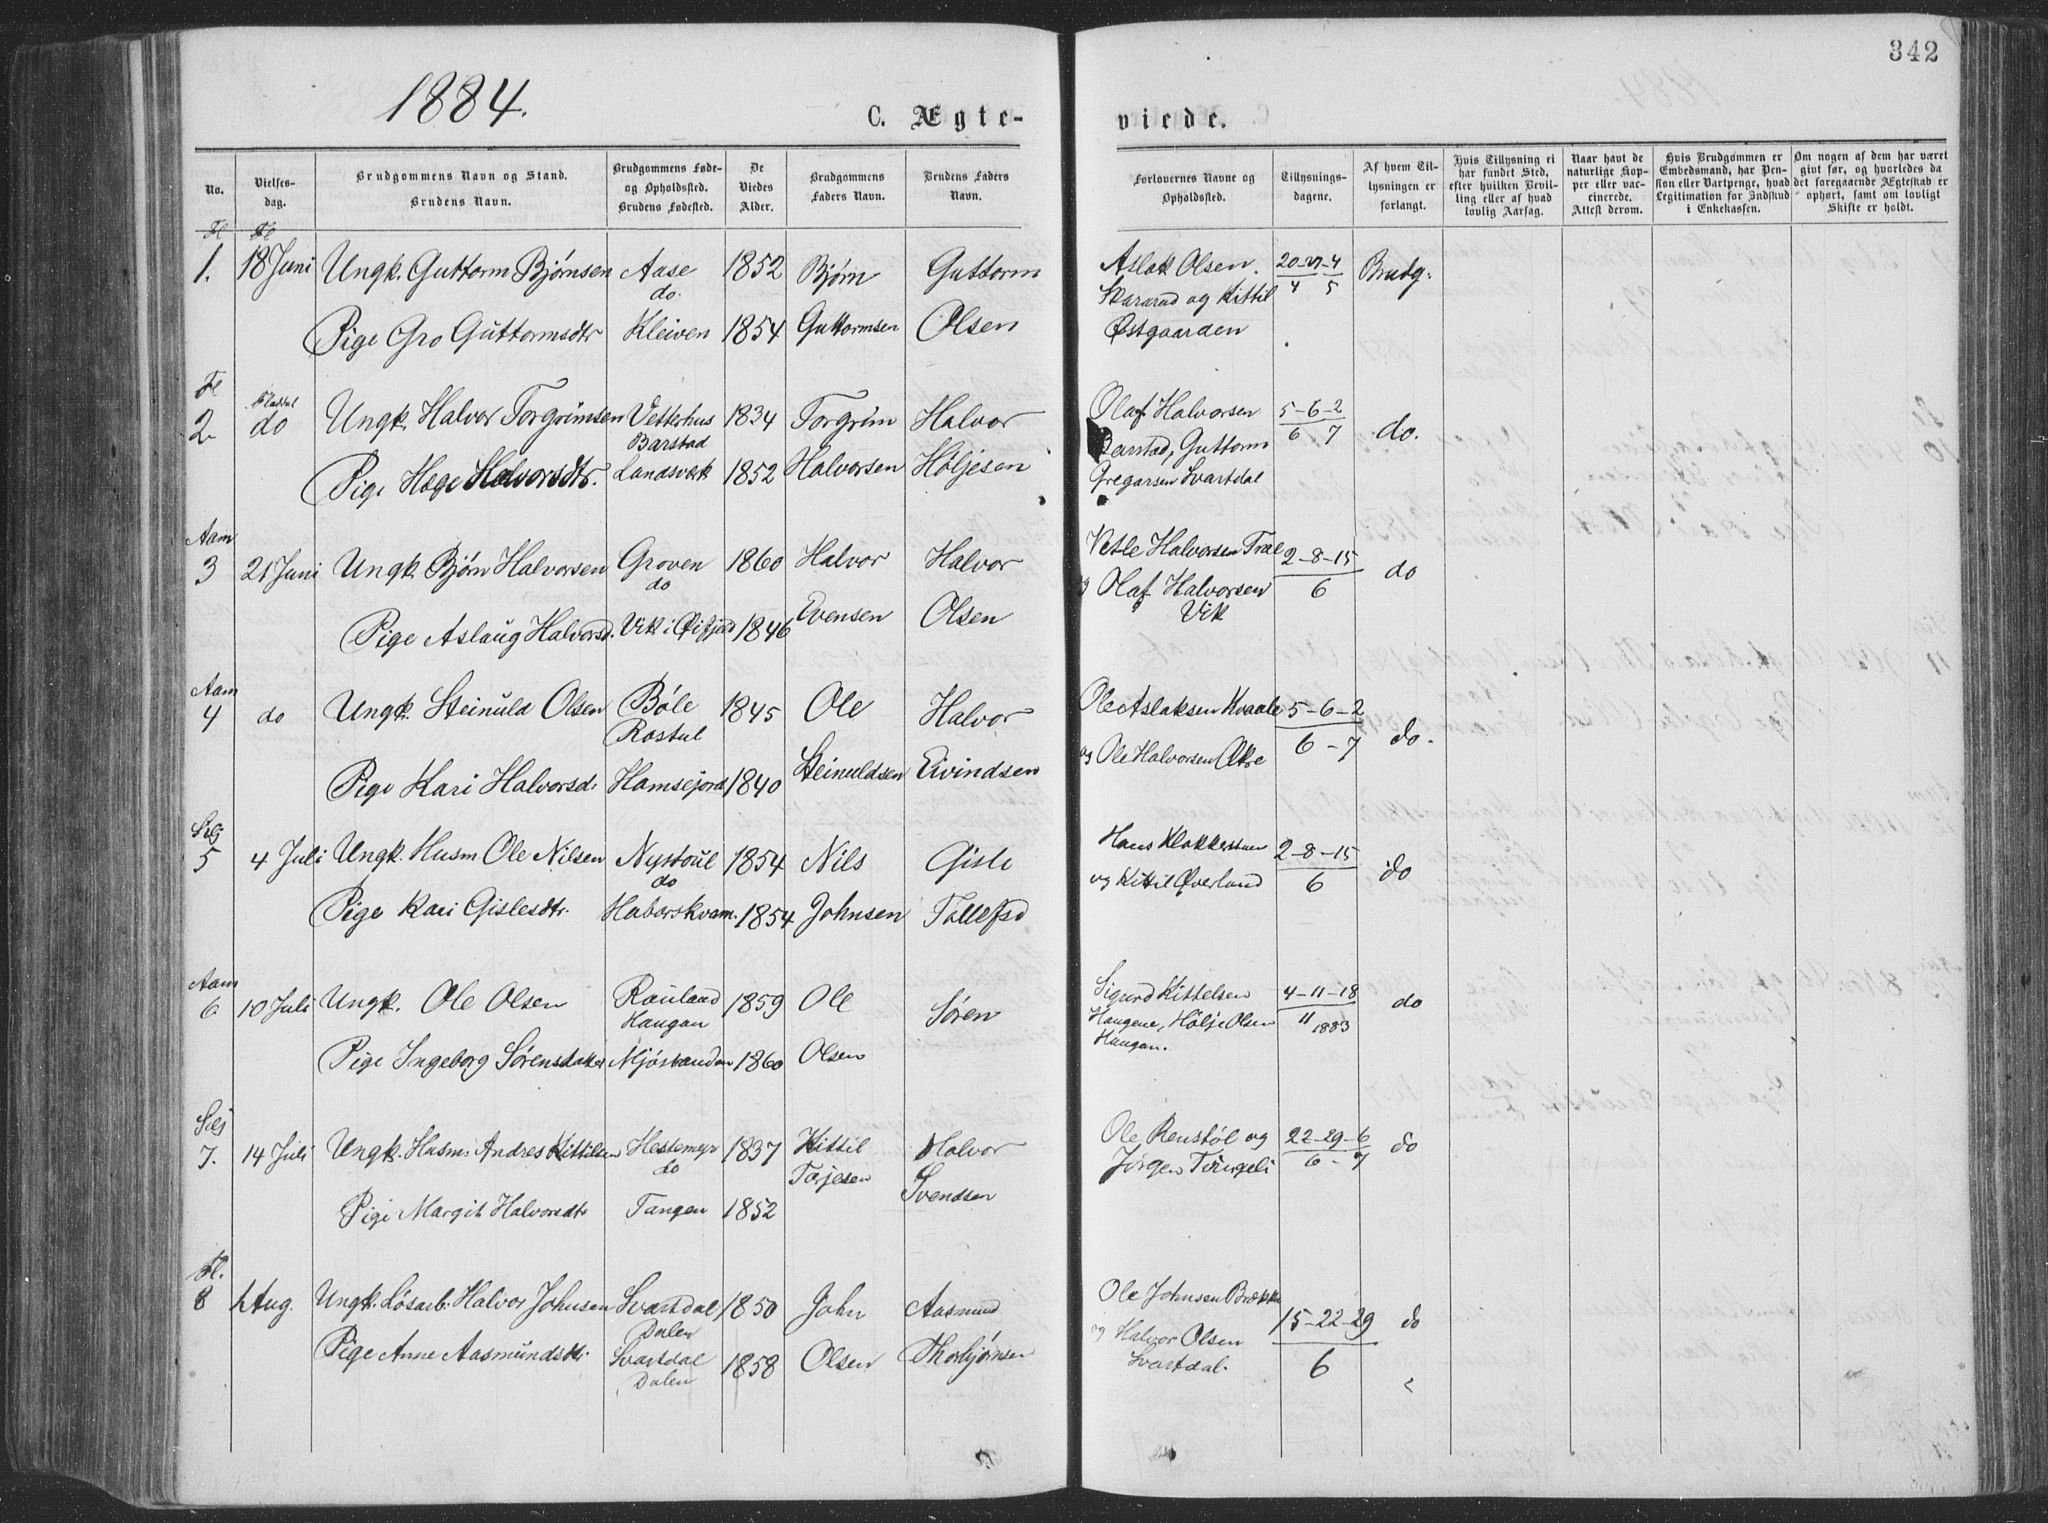 342
1884.
C. Ægte-
viede.
No.
Vielses-
dag.
Brudgommens Navn og Stand.
Brudens Navn.
Brudgommens Føde-
og Opholdssted.
Brudens Fødested.
De
Viedes
Alder.
Brudgommens
Faders Navn.
Brudens Faders
Navn.
Forlovernes Navne og
Opholdssted.
Tillysnings-
dagene.
Af hvem Til-
lysningen er
forlangt.
Hvis Tillysning ei
har fundet Sted,
efter hvilken Bevil-
ling eller af hvad
lovlig Aarsag.
Naar havt de
naturlige Kop-
per eller vac-
cinerede.
Attest derom.
Hvis Brudgommen er
Embedsmand, har Pen-
sion eller Vartpenge, hvad
Legitimation for Indskud
i Enkekassen.
Om nogen af dem har været
givt før, og hvorledes da
det foregaaende Ægteskab er
ophørt, samt om lovligt
Skifte er holdt.
Fl Fl
1. 18 Juni Ungk. Guttorm Bjørnsen Aase 1852 Bjørn Guttorm Aslak Olsen 20-27-4 Brudg.
do. Skararud og Kittil 4 5
Pige Gro Guttormsdtr Kleiven 1854 Guttormsen Olsen Østgaarden
Fl
2 do Ungk. Halvor Torgrimsen Vetterhus 1834 Torgrim Halvor Olaf Halvorsen 5-6-2 do.
Barstad Barstad, Guttorm 6 7
Pige Hæge Halvorsdtr. Landsverk 1852 Halvorsen Holjesen Gregarsen Svartdal
Aam
3 21 Juni Ungk. Bjørn Halvorsen Groven 1860 Halvor Halvor Vetle Halvorsen Træe 2-8-15 do
do og Olaf Halvorsen 6
Pige Aslaug Halvorsd. Vik i 1846 Evensen Olsen Vik
Aam
4 do Ungk. Steinuld Olsen Bøle 1845 Ole Halvor Ole Aslaksen Kvaale 5-6-2 do.
Rostul 6-7
Pige Kari Halvorsd. Hamsejord 1840 Steinuldsen Eivindsen og Ole Halvorsen Økre
5 4 Juli Ungk. Husm Ole Nilsen Nystøul 1854 Nils Gisle Hans Klokkerstuen 2-8-15 do
do og Kittil Øverland 6
Pige Kari Gislesdtr. Haborskvam. 1854 Johnsen Tollefsd
Aam
6 10 Juli Ungk. Ole Olsen Rauland 1859 Ole Søren Sigurd Kittelsen 4-11-18 do
Haugan Haugene, Hølje Olsen 11 1883
Pige Ingeborg Sørensdatter Mjøstranden 1860 Olsen Haugan.
7. 14 Juli Ungk. Husm. Andres Kittilsen Hestemyr 1837 Kittil Halvor Ole Renstøl og 22-29-6 do
do Torjesen Svendsen Jørgen 6-7
Pige Margit Halvorsdtr Tangen 1852
Fl.
8 Aug. Ungk. Løsarb. Halvor Johnsen Svartdal 1850 John Aasmund Ole Johnsen Brække 15-22-29 do
Dalen og Halvor Olsen 6
Pige Anne Aasmundsdtr Svartdal 1858 Olsen Thorbjørnsen Svartdal.
Dalen